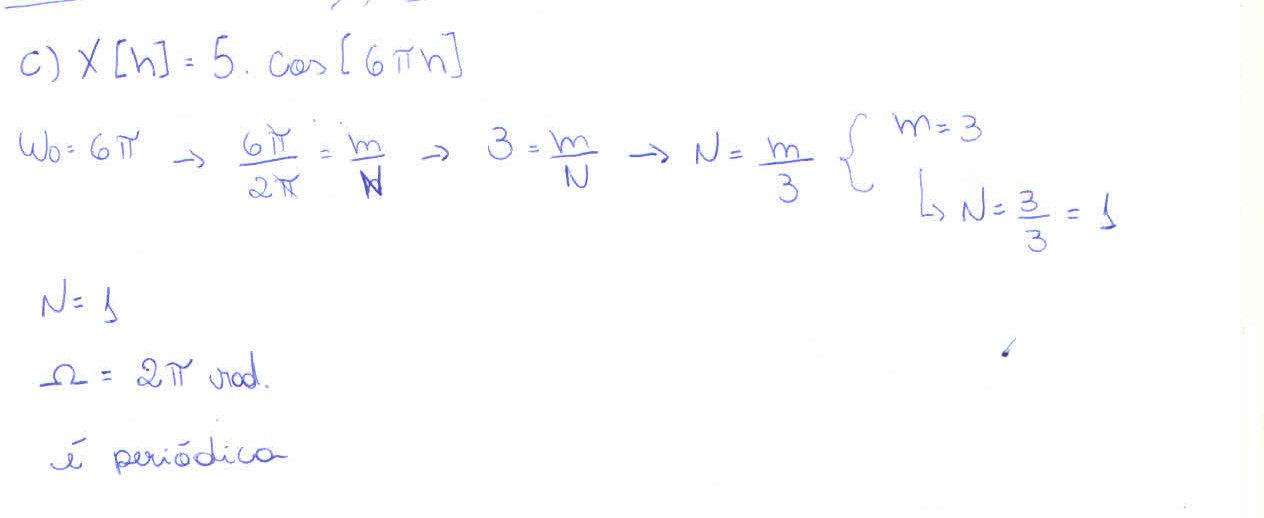 c) X[n] = 5. cos[6πn]
W0 = 6π → 6π/2π = m/N → 3 = m/N → N = m/3 { m = 3
↳ N = 3/3 = 1
N = 1
Ω = 2π rad.
é periódica